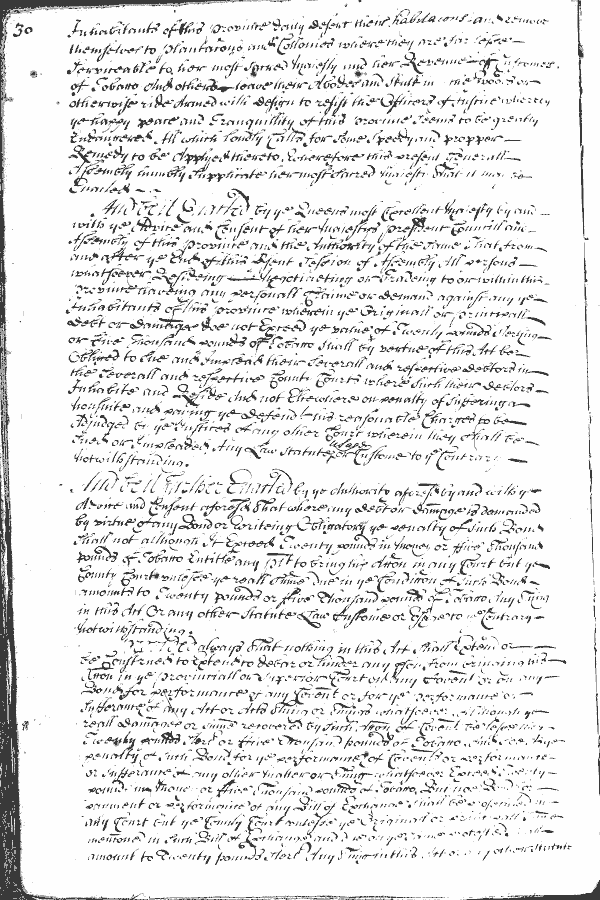 30
Inhabitants of this Province dayly desert their habitacons and remove
themselves to Plantations and Collonies where they are far lesse
Serviceable to her most Sacred Majesty and her Revenue of Customes
of Tobacco And others leave their Abodes and Skulk in the woods or
otherwise ride Armed with design to resist the Officers of Justice whereby
ye happy peace and Tranquillity of this Province seems to be greatly
Endangered All which loudly Calls for some Speedy and propper
Remedy to be Applyed thereto, Wherefore this present Generall
Assembly humbly Supplicate her most Sacred Majestie that it may be
Enacted
And be it Enacted by ye Queens most Excellent Majesty by and
with ye Advice and Consent of her Majestys president Councill and
Assembly of this Province and the Authority of the same That from
and after ye End of this psent Session of Assembly All persons
whatsoever Resideing Negotiateing or Tradeing to or within this
Province haveing any personall Claime or demand against any ye
Inhabitants of this Province wherein ye Originall or principall
debt or damages doe not Exceed ye value of Twenty pounds Sterling
or five thousand pounds of Tobaco Shall by vertue of this Act bee
Obliged to Sue and Implead their Severall and respective debtors in
the Severall and respective County Courts where Such their debtors
Inhabite and Reside And not Elsewhere on penalty of Suffering a
nonsuite and paying ye defend.ts his reasonable Charges to be
Adjudged by ye Justices of any other Court wherein they Shall be
Sued or Impleaded Any Law Statute usage or Custome to ye Contrary
notwithstanding.
And be it further Enacted by ye Authority aforesd by and with ye
Advice and Consent aforesd That where any debt or damage is demanded
by virtue of any Bond or Writeing Obligatory ye penalty of Such Bond
Shall not although It Exceeds Twenty pounds in money or ffive Thousand
pounds of Tobaco Entitle any Plt to bring his Action in any Court but ye
County Court unlesse ye reall Sume Due in ye Condition of Such Bond
amounts to Twenty pounds or ffive Thousand pounds of Tobaco Any Thing
in this Act Or any other Statute Law Custome or Usage to ye Contrary
Notwithstanding.
always That nothing in this Act Shall Extend or
be Construed to Extend to debar or hinder any pson from bringing his
Action in ye Provinciall or Superior Court on any Covent or on any
Bond for performance of any Covent or for ye performance or
Sufferance of any Act or Acts Thing or things whatsoever Although ye
reall damages or Sume recovered by Such Action of Covent be lesse then
Twenty pounds Sterl or ffive Thousand pounds of Tobaco
penalty of Such Bond for ye performance of Covents or performance
or Sufferance of any other Matter or Thing whatsoever Exceed Twenty
pounds in Money or ffive Thousand pounds of Tobaco, But noe
payment or performance of any Bill of Exchange Shall be
any Court but ye County Court unlesse ye Originall or principall Sume
mentioned in Such Bill of Exchange and
amount to Twenty pounds Sterl Any Thing in this Act or any other Statute